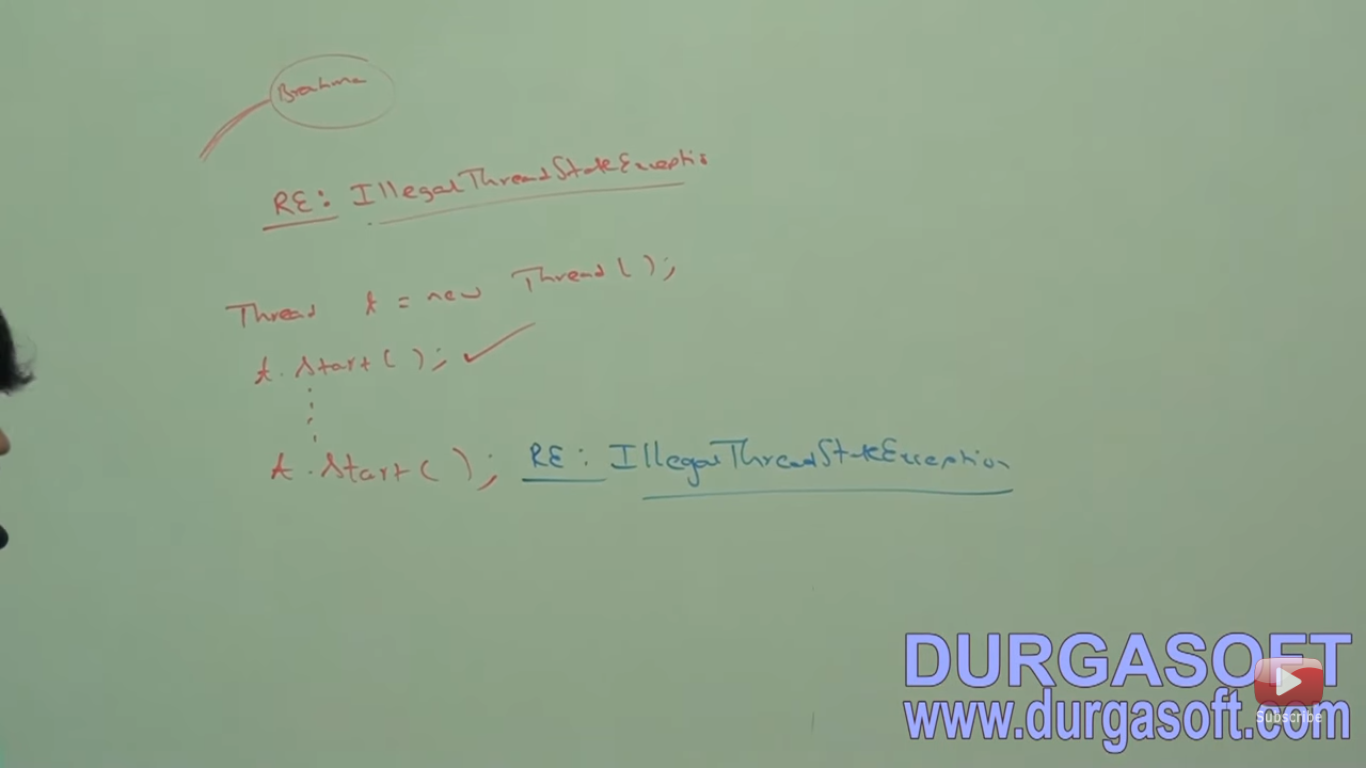 Brahma
RE: IllegalThreadStateExceptio
Thread t = new Thread();
t.start();
t.start(); RE: IllegalThreadStateException
DURGASOFT
www.durgasoft.com
Subscribe